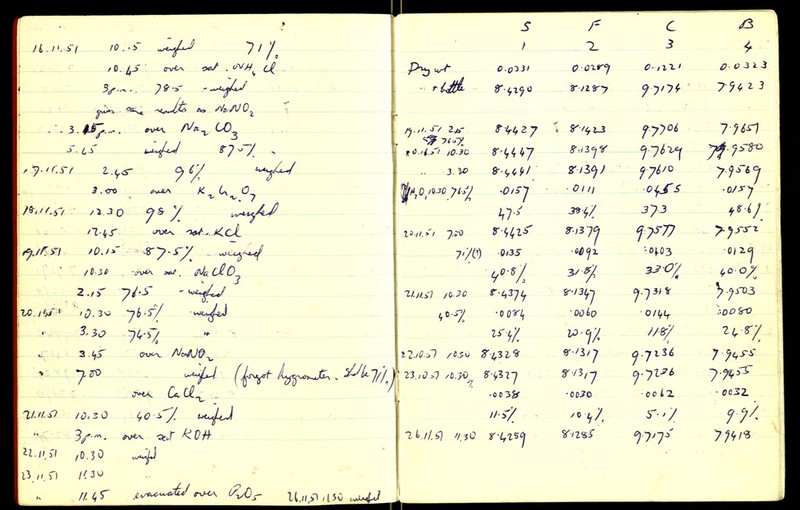 16.11.51 10.15 weighed 71%
10.45 over sat. NH4Cl
3 p.m. 78.5 - weighed
gives same results as NaNO2
3.15 p.m. over Na2CO3
5.45 weighed 87.5%
17.11.51 2.45 96% weighed
3.00 over K2Cr2O7
18.11.51 12.30 98% weighed
12.45 over sat. KCl
19.11.51 10.15 87.5% - weighed
10.30 over sat. NaClO3
2.15 76.5 - weighed
20.11.51 10.30 76.5% weighed
" 3.30 74.5% "
" 3.45 over NaNO2
" 7.00 weighed (forgot hygrometer. Shd be 71%)
over CaCl2
21.11.51 10.30 40.5% weighed
" 3 p.m. over sat KOH
22.11.51 10.30 weighed
23.11.51 11.30
" 11.45 evacuated over P2O5 26.11.51 11.30 weighed
S F C B
1 2 3 4
Dry wt 0.0331 0.0289 0.1221 0.0323
" + bottle 8.4290 8.1287 9.7174 7.9423
19.11.51 2.15 8.4427 8.1423 9.7706 7.9651
76.5%
20.11.51 10.30 8.4447 8.1398 9.7629 7.9580
" 3.20 8.4441 8.1391 9.7610 7.9569
H2O, 10.30 76.5% .0157 .0111 .0455 .0157
47.5 38.4% 37.3 48.6%
20.11.51 7.00 8.4425 8.1379 9.7577 7.9552
71%(?) .0135 .0092 .0403 .0129
40.8% 31.8% 33.0% 40.0%
21.11.51 10.30 8.4374 8.1347 9.7318 7.9503
40.5% .0084 .0060 .0144 .0080
25.4% 20.9% 11.8% 24.8%
22.10.51 10.30 8.4328 8.1317 9.7236 7.9455
23.10.51 10.30 8.4327 8.1317 9.7236 7.9455
.0038 .0030 .0062 .0032
11.5% 10.4% 5.1% 9.9%
26.11.51 11.30 8.4289 8.1285 9.7175 7.9418